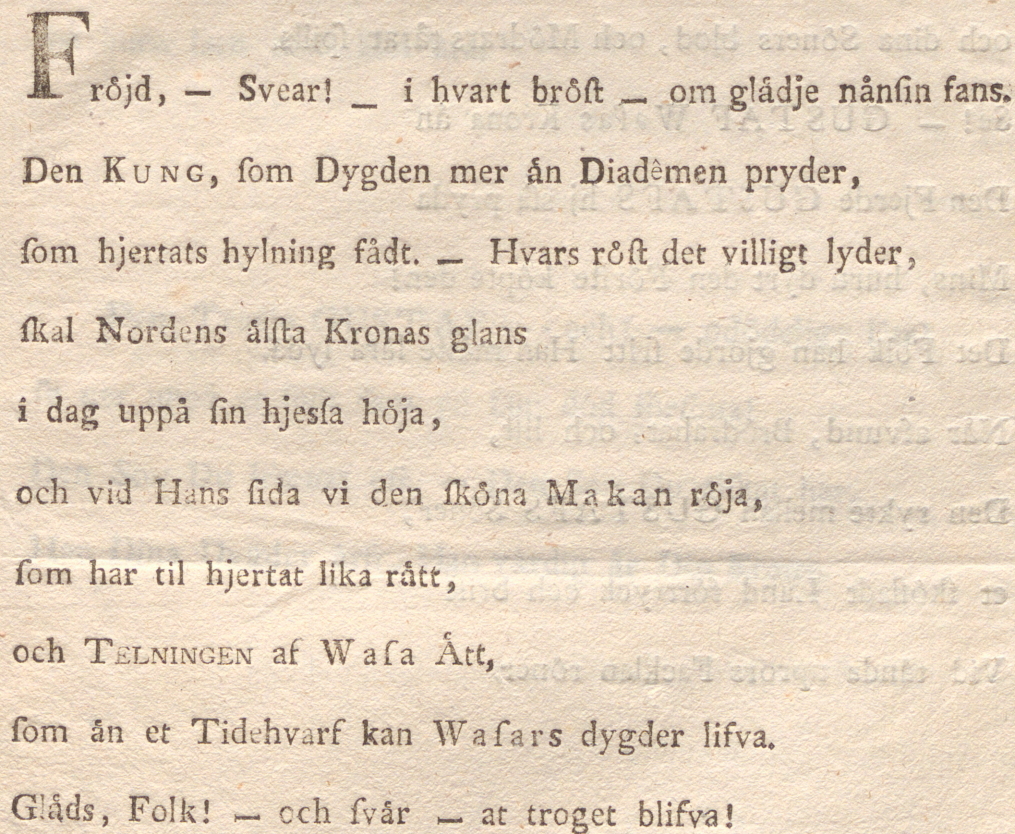 Fröjd, — Svear! — i hvart bröſt — om glädje nånſin fans.
Den KUNG, ſom Dygden mer än Diadêmen pryder,
ſom hjertats hylning fådt. — Hvars röſt det villigt lyder,
ſkal Nordens älſta Kronas glans
i dag uppå ſin hjesſa höja,
och vid Hans ſida vi den ſköna Makan röja,
ſom har til hjertat lika rätt,
och TELNINGEN af Waſa Ätt,
ſom än et Tidehvarf kan Waſars dygder lifva.
Gläds, Folk! — och ſvär — at troget blifva!